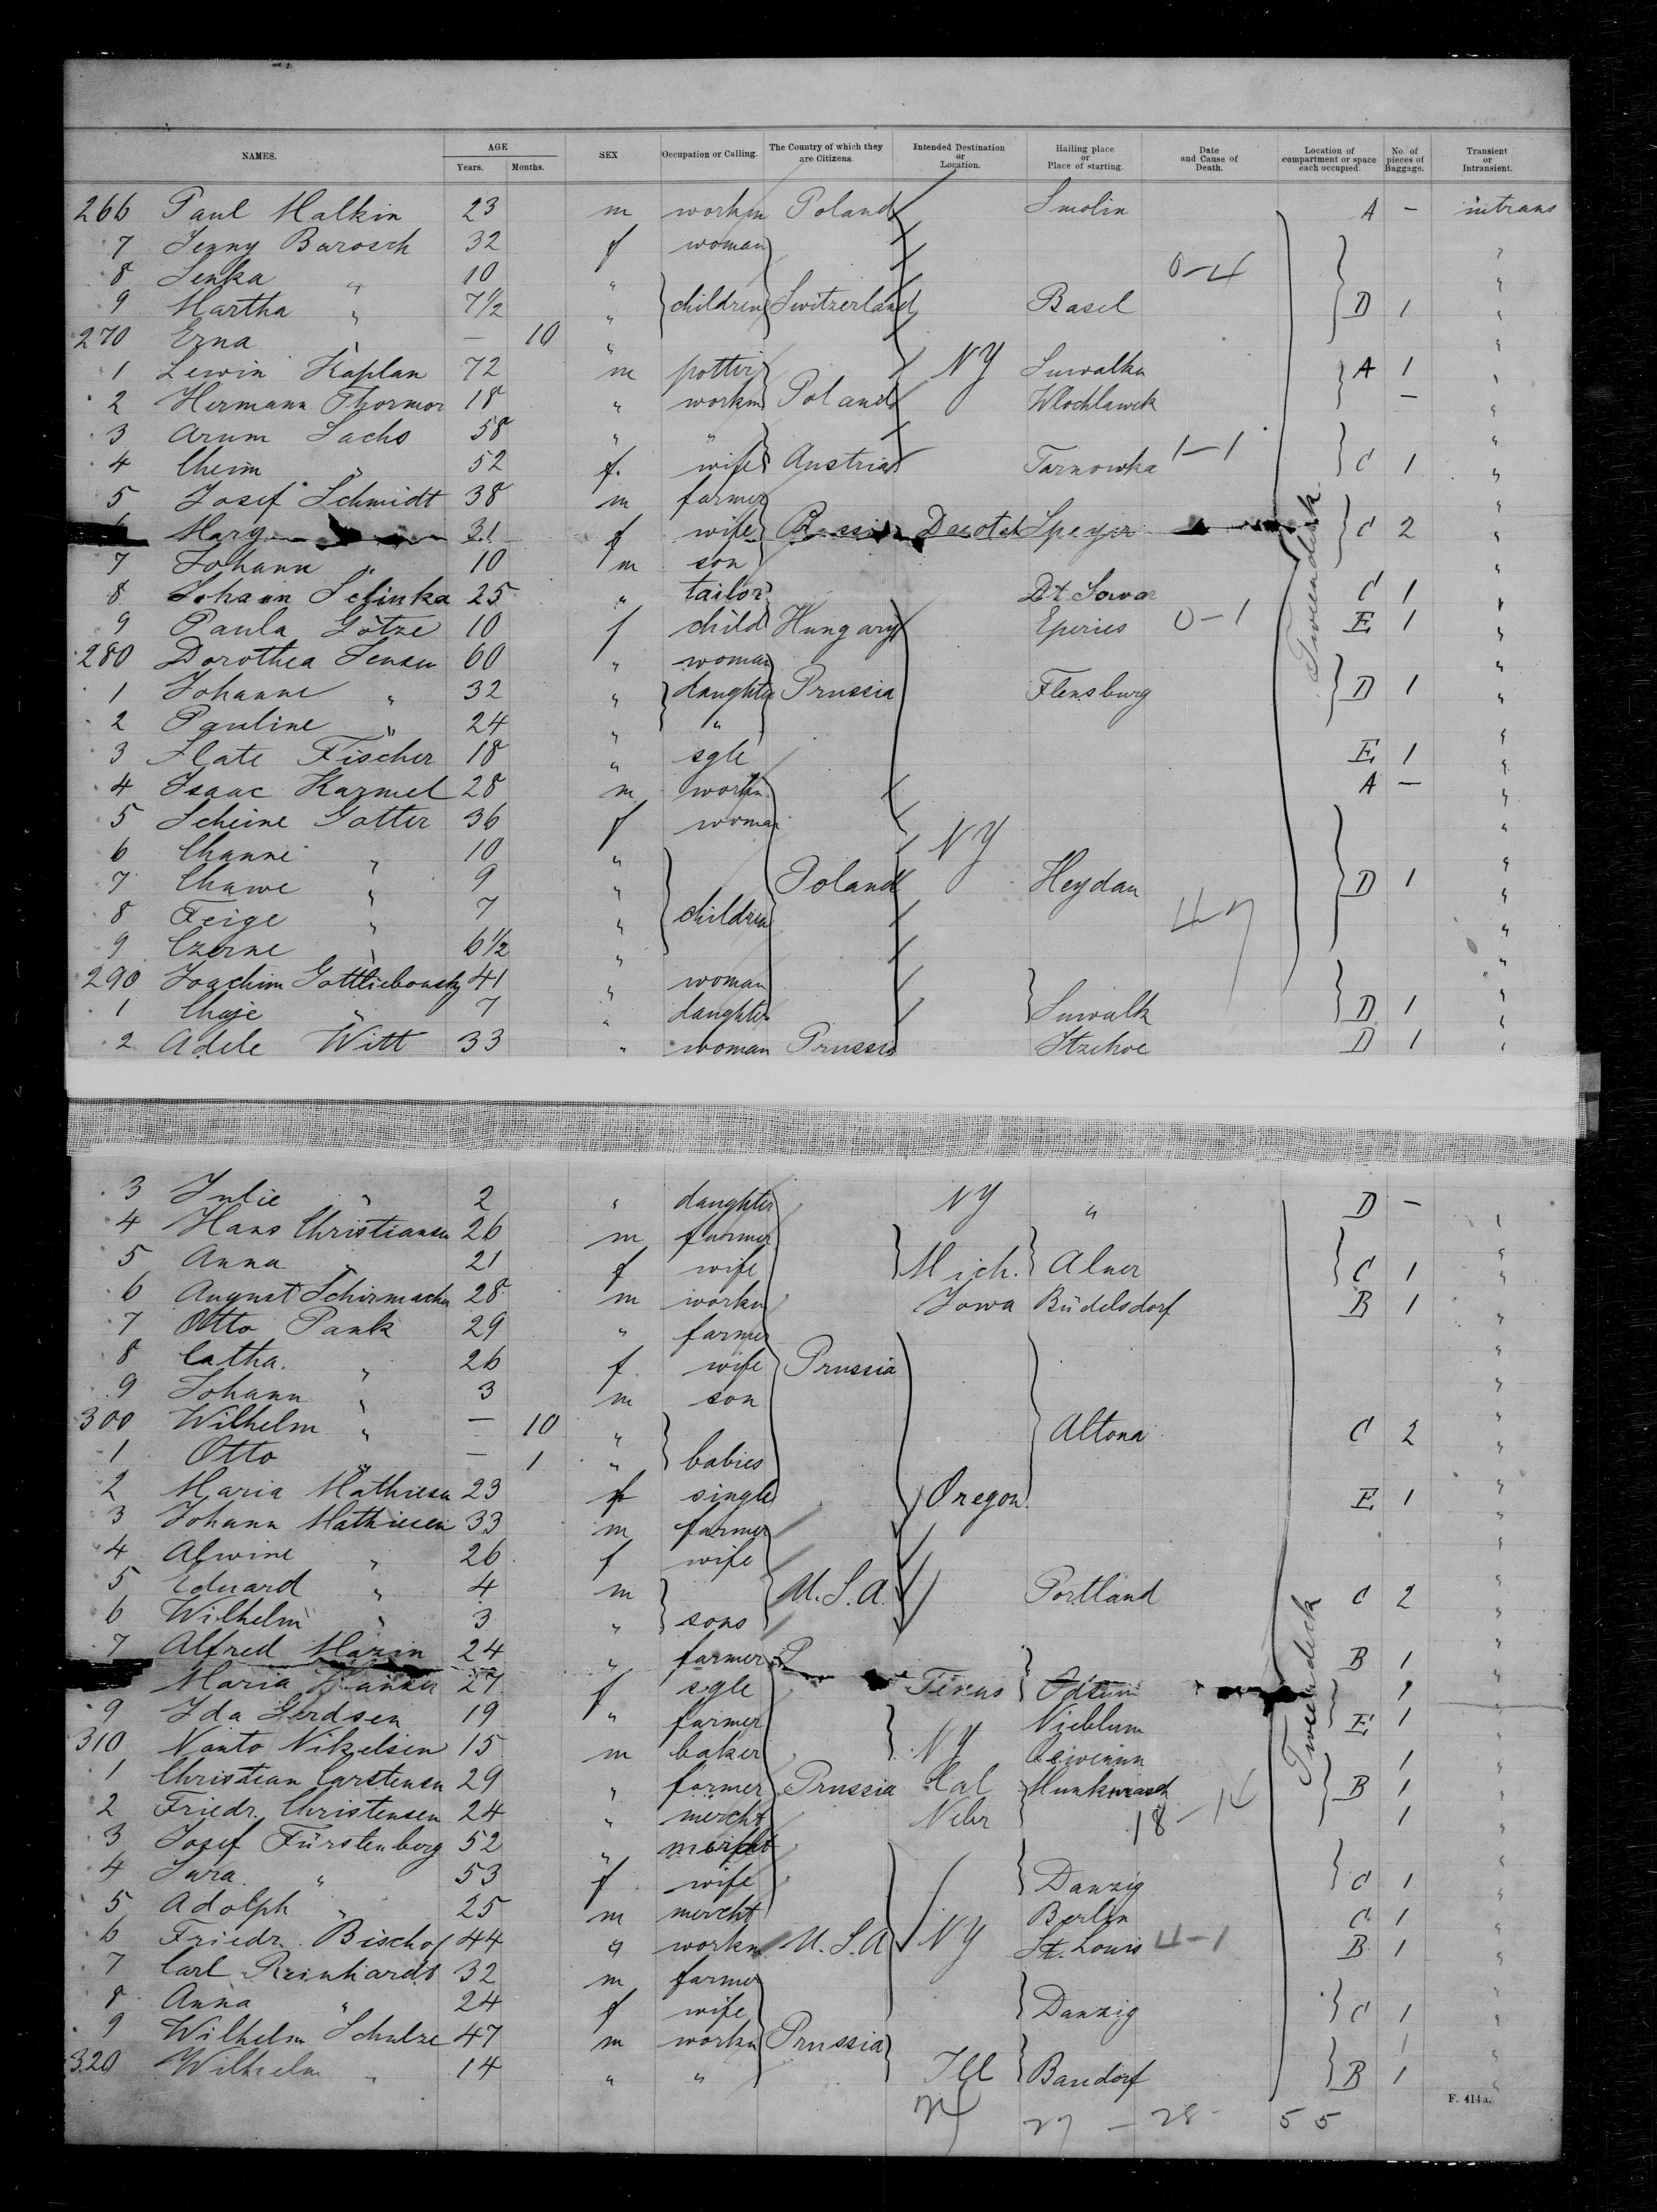 NAMES. AGE SEX Occupation or Calling. The Country of which they are Citizens. Intended Destination or Location. Hailing place or Place of starting. Date and Cause of Death. Location of compartment or space each occupied. No. of pieces of Baggage. Transient or Intransient.
Years. Months.
266 Paul Malkin 23 m workm Poland Smolin A — intrans
7 Jenny Barosch 32 f woman "
8 Jenka " 10 " 0-4 "
9 Martha " 7½ " children Switzerland Basel D 1 "
270 Erna " — 10 " "
1 Lewin Kaplan 72 m potter NY Suwalka A 1 "
2 Hermann Thormor 18 " workm Poland Wlochlawek — "
3 Arum Sachs 58 " " 1-1 "
4 Cheim " 52 f. wife Austria Tarnowka C 1 "
5 Josef Schmidt 38 m farmer "
Marg 31 f wife Russia Dacotah Speyer C 2 "
7 Johann " 10 m son "
8 Johann Selinka 25 " tailor Dt. Sowar C 1 "
9 Paula Götze 10 f child Hungary Eperies 0-1 E 1 "
280 Dorothea Jensen 60 " woman "
1 Johanne " 32 " daughter Prussia Flensburg D 1 "
2 Pauline " 24 " " "
3 Slate Fischer 18 " sgle E 1 "
4 Isaac Karmel 28 m workm A — "
5 Scheine Gotter 36 f woman NY "
6 Channe " 10 " "
7 Chawe " 9 " Poland Heydan D 1 "
8 Feige " 7 " children 4-7 "
9 Czerne " 6½ " "
290 Joachim Gottliebowsky 41 " woman "
1 Chaje " 7 " daughter Suwalk D 1 "
2 Adele Witt 33 " woman Prussia Itzehoe D 1 "
Tweendeck
3 Julie " 2 " daughter NY " D — "
4 Hans Christiansen 26 m farmer "
5 Anna " 21 f wife Mich. Alner C 1 "
6 August Schirmacher 28 m workm Iowa Büdelsdorf B 1 "
7 Otto Pank 29 " farmer "
8 Catha. " 26 f wife Prussia "
9 Johann " 3 m son "
300 Wilhelm " — 10 " Altona C 2 "
1 Otto " — 1 " babies "
2 Maria Mathiesen 23 f single Oregon E 1 "
3 Johann Mathiesen 33 m farmer "
4 Alwine " 26 f wife "
5 Eduard " 4 m U.S.A. Portland C 2 "
6 Wilhelm " 3 " sons "
7 Alfred Mazin 24 " farmer B 1 "
Maria Hansen 27 f sgle Texas 1 "
9 Ida Gerdsen 19 " farmer Nieblum E 1 "
310 Nanto Nikelsen 15 m baker NY 1 "
1 Christian Carstensen 29 " farmer Prussia Cal B 1 "
2 Friedr. Christensen 24 " mercht Nebr 18-14 1 "
3 Josef Fürstenberg 52 " mercht "
4 Sara " 53 f wife Danzig C 1 "
5 Adolph " 25 m mercht Berlin C 1 "
6 Friedr. Bischof 44 " workm U.S.A NY St. Louis 4-1 B 1 "
7 Carl Reinhardt 32 m farmer "
8 Anna " 24 f wife Danzig C 1 "
9 Wilhelm Schulze 47 m workm Prussia 1 "
320 Wilhelm " 14 " " Ill Bandorf B 1 "
Tweendeck
F. 414a.
27 - 28 55